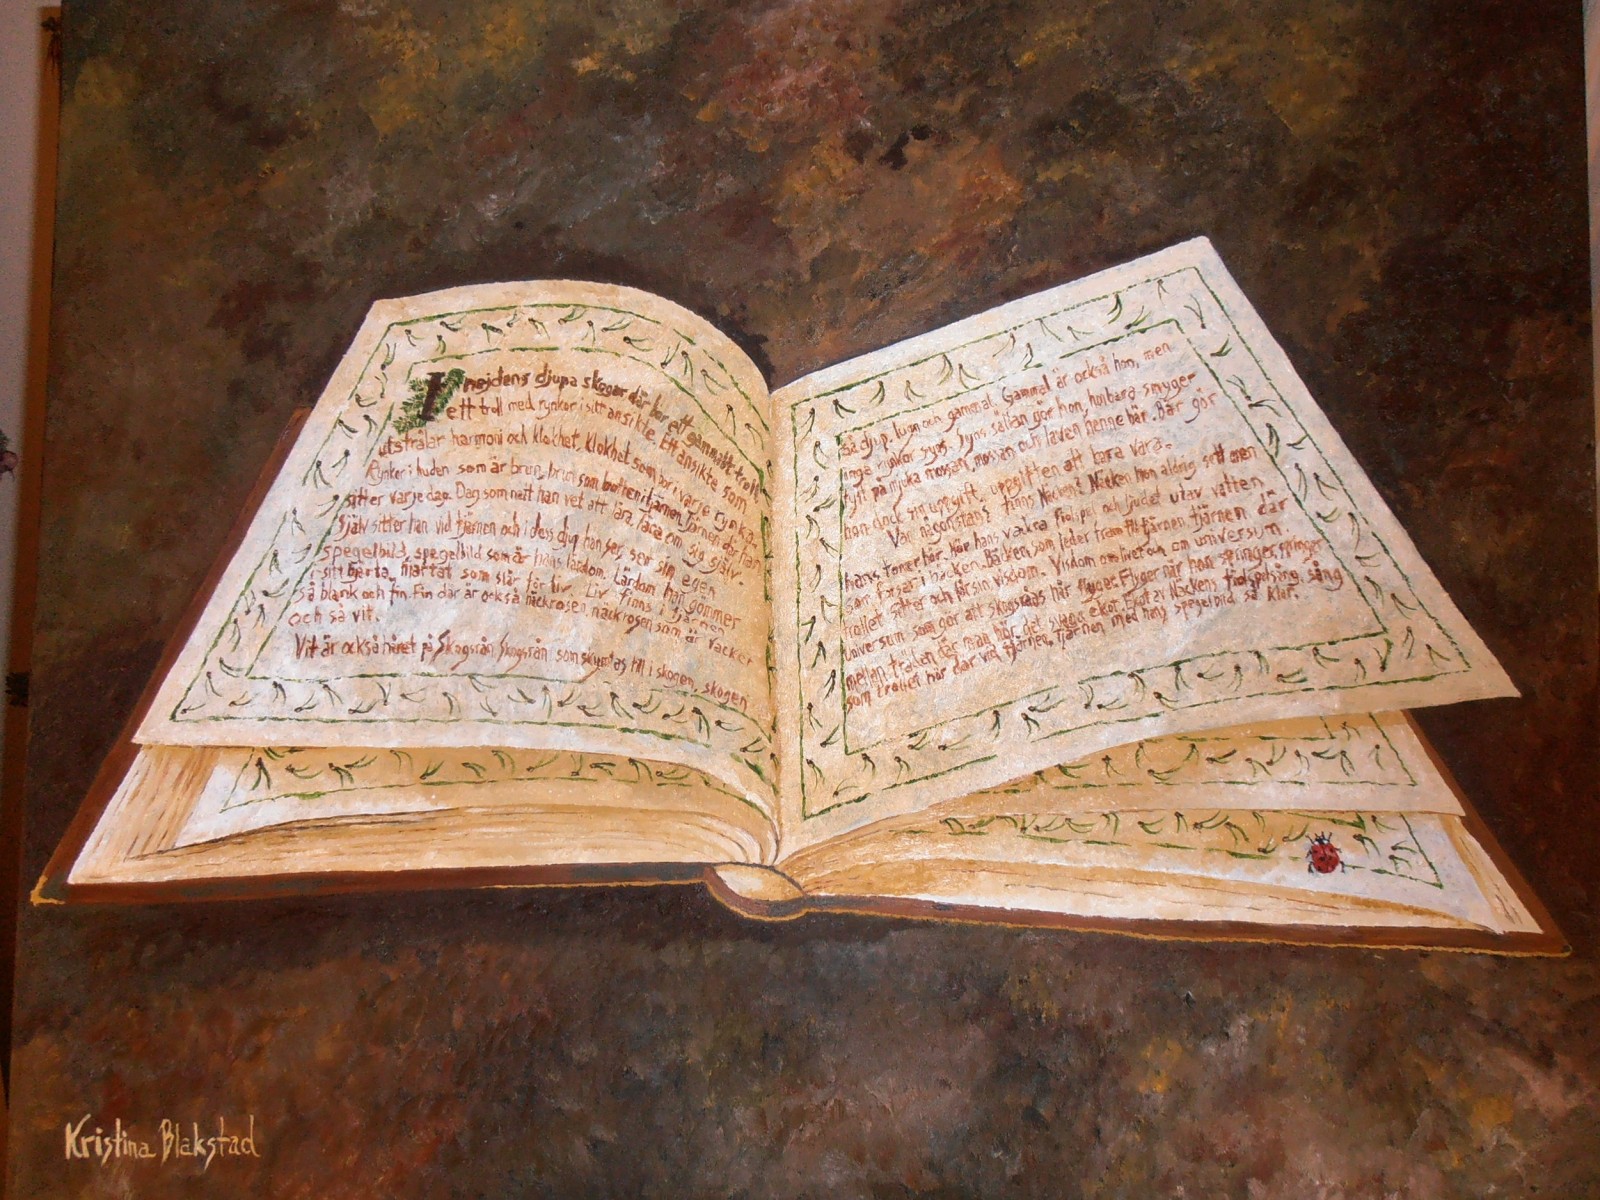 I nejdens djupa skogar där bor ett gammalt troll
ett troll med rynkor i sitt ansikte. Ett ansikte som
utstrålar harmoni och klokhet, klokhet som bor i varje rynka.
Rynkor i huden som är brun, brun som botten i tjärnen, tjärnen där han
sitter varje dag. Dag som natt han vet att lära, lära om sig själv.
Själv sitter han vid tjärnen och i dess djup han ser, ser sin egen
spegelbild, spegelbild som är hans lärdom. Lärdom han gömmer
i sitt hjärta, hjärtat som slår för liv. Liv finns i tjärnen
så blank och fin. Fin där är också näckrosen, näckrosen som är vacker
och så vit.
Vit är också håret på Skogsrån, Skogsrån som skymtas till i skogen, skogen
så djup, lugn och gammal. Gammal är också hon, men
inga rynkor syns. Syns sällan gör hon, hon bara smyger
tyst på mjuka mossan, mossan och laven henne bär. Bär gör
hon dock sin uppgift, uppgiften att bara vara.
Var någonstans finns Näcken? Näcken hon aldrig sett men
hans toner hör. Hör hans vackra fiolspel och ljudet utav vatten
som forsar i bäcken. Bäcken som leder fram till tjärnen, tjärnen där
trollet sitter och får sin visdom. Visdom om livet och om universum.
Universum som gör att skogsrået när flyger. Flyger när hon springer, springer
mellan träden där man hör det svaga ekot. Ekot av Näckens fiolspelsång, sång
som trollet hör där vid tjärnen, tjärnen med hans spegelbild så klar.
Kristina Blakstad